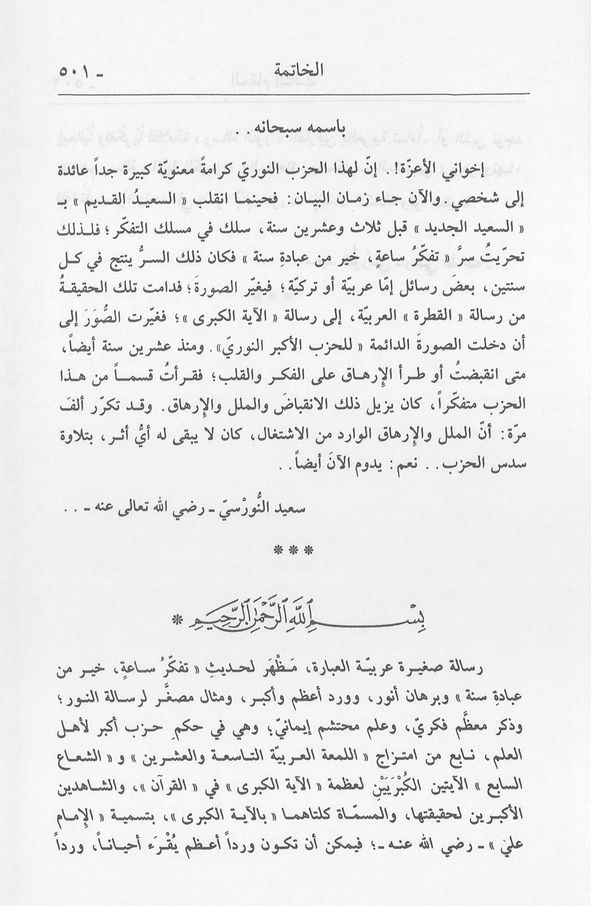 الخاتمة ـ ٥٠١
باسمه سبحانه . .
إخواني الأعزّة! . إنّ لهذا الحزب النوريّ كرامةً معنويّة كبيرة جداً عائدة
إلى شخصي . والآن جاء زمان البيان : فحينما انقلب « السعيدُ القديم » بـ
« السعيد الجديد » قبل ثلاث وعشرين سنة، سلك في مسلك التفكّر؛ فلذلك
تحرّيتُ سرَّ « تفكّرُ ساعةٍ، خير من عبادةِ سنة » فكان ذلك السرُّ ينتج في كل
سنتين، بعضَ رسائل إمّا عربيّة أو تركيّة؛ فيغيّر الصورةَ؛ فدامت تلك الحقيقةُ
من رسالة « القطرة » العربيّة، إلى رسالة « الآية الكبرى »؛ فغيّرت الصُّوَرَ إلى
أن دخلت الصورةَ الدائمة « للحزب الأكبر النوريّ». ومنذ عشرين سنة أيضاً،
متى انقبضتُ أو طرأ الإرهاق على الفكر والقلب؛ فقرأتُ قسماً من هذا
الحزب متفكّراً، كان يزيل ذلك الانقباضَ والملل والإرهاق. وقد تكرّر ألفَ
مرّة: أنّ الملل والإرهاق الوارد من الاشتغال، كان لا يبقى له أيُّ أثـر، بتلاوة
سدس الحزب . . نعم : يدوم الآنَ أيضاً . .
سعيد النُّورْسيّ ـ رضي الله تعالى عنه ـ . .
* * *
بِسْمِ اللهِ الرَّحْمٰنِ الرَّحِيمِ *
رسالة صغيرة عربيّة العبارة، مَظْهَر لحديثِ « تفكّرُ ساعةٍ، خير من
عبادةِ سنة » وبرهان أنور، وورد أعظم وأكبر، ومثال مصغَّر لرسالة النور؛
وذكر معظَّم فكريّ، وعلم محتشم إيمانيّ؛ وهي في حكمِ حزب أكبر لأهل
العلم، نابع من امتزاج « اللمعة العربيّة التاسعة والعشرين » و « الشعاع
السابع » الآيتين الكُبْرَيَيْنِ لعظمة « الآية الكبرى » في « القرآن »، والشاهدين
الأكبرين لحقيقتها، والمسمّاة كلتاهما « بالآية الكبرى »، بتسمية « الإمام
علي » ـ رضي الله عنه ـ؛ فيمكن أن تكون ورداً أعظم يُقْرَء أحياناً، ورداً